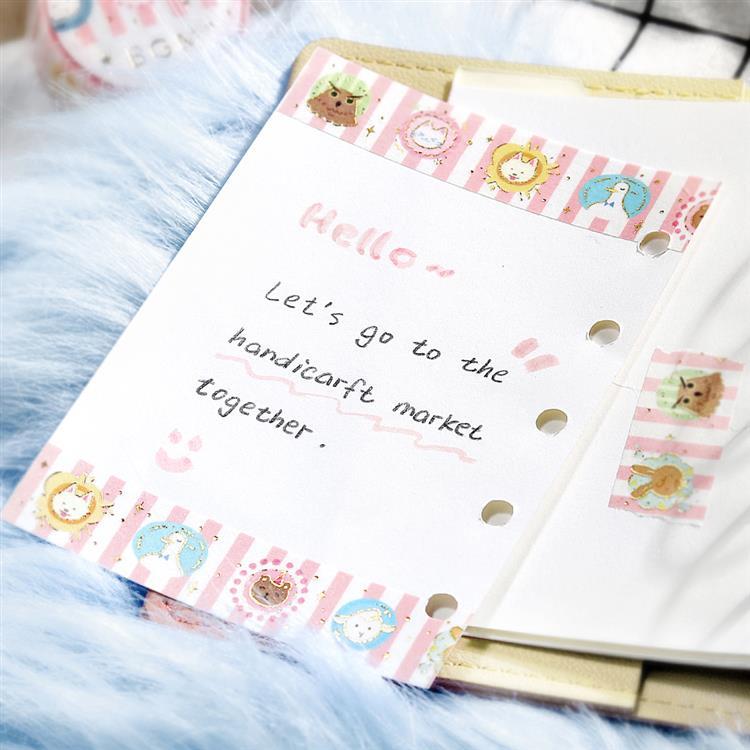 BGM
Hello~
Let's go to the
handicarft market
together.